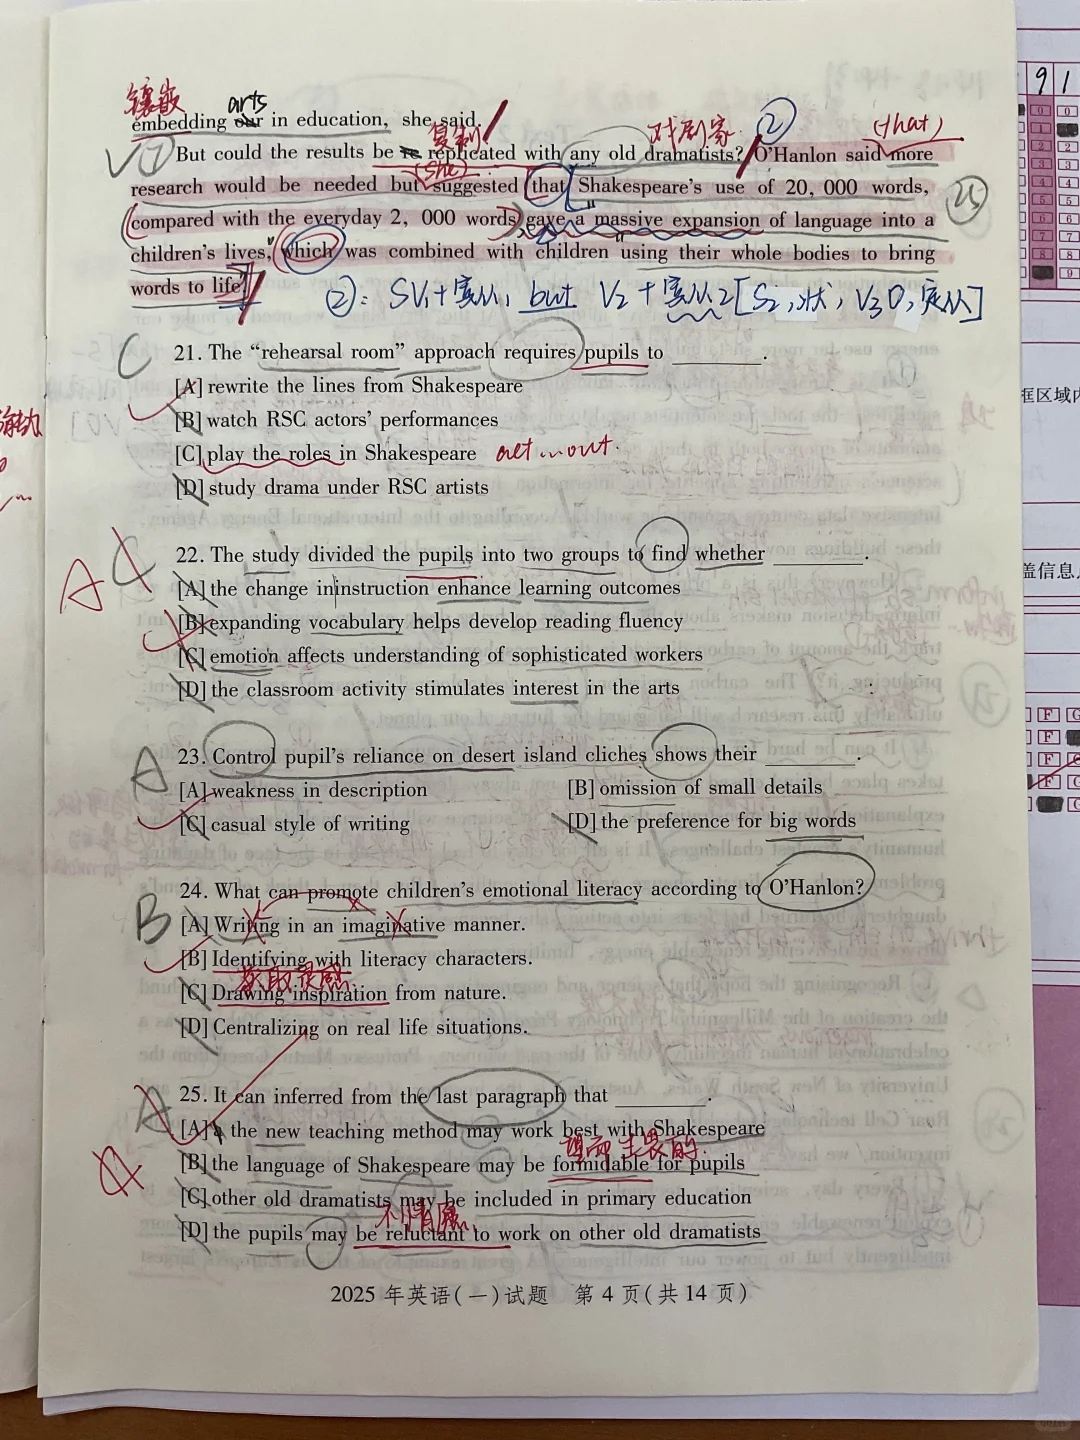 镶嵌 arts
embedding our in education, she said.
复制 戏剧家 ② (that)
① But could the results be replicated with any old dramatists? O'Hanlon said more
(she)
research would be needed but suggested that Shakespeare's use of 20, 000 words,
25
compared with the everyday 2, 000 words, gave a massive expansion of language into a
children's lives, which was combined with children using their whole bodies to bring
words to life."
②: SV₁+宾从, but V₂+宾从2[S₂,状, V₃O,定从]
C 21. The "rehearsal room" approach requires pupils to ________.
[A] rewrite the lines from Shakespeare
[B] watch RSC actors' performances
[C] play the roles in Shakespeare act...out.
[D] study drama under RSC artists
A C 22. The study divided the pupils into two groups to find whether ________.
[A] the change in instruction enhance learning outcomes
[B] expanding vocabulary helps develop reading fluency
[C] emotion affects understanding of sophisticated workers
[D] the classroom activity stimulates interest in the arts
A 23. Control pupil's reliance on desert island cliches shows their ________.
[A] weakness in description [B] omission of small details
[C] casual style of writing [D] the preference for big words
B 24. What can promote children's emotional literacy according to O'Hanlon?
[A] Writing in an imaginative manner.
[B] Identifying with literacy characters.
获取灵感
[C] Drawing inspiration from nature.
[D] Centralizing on real life situations.
A 25. It can inferred from the last paragraph that ________.
[A] the new teaching method may work best with Shakespeare
望而生畏的
A [B] the language of Shakespeare may be formidable for pupils
[C] other old dramatists may be included in primary education
不情愿
[D] the pupils may be reluctant to work on other old dramatists
2025 年英语(一)试题 第 4 页(共 14 页)
91
框区域内
盖信息